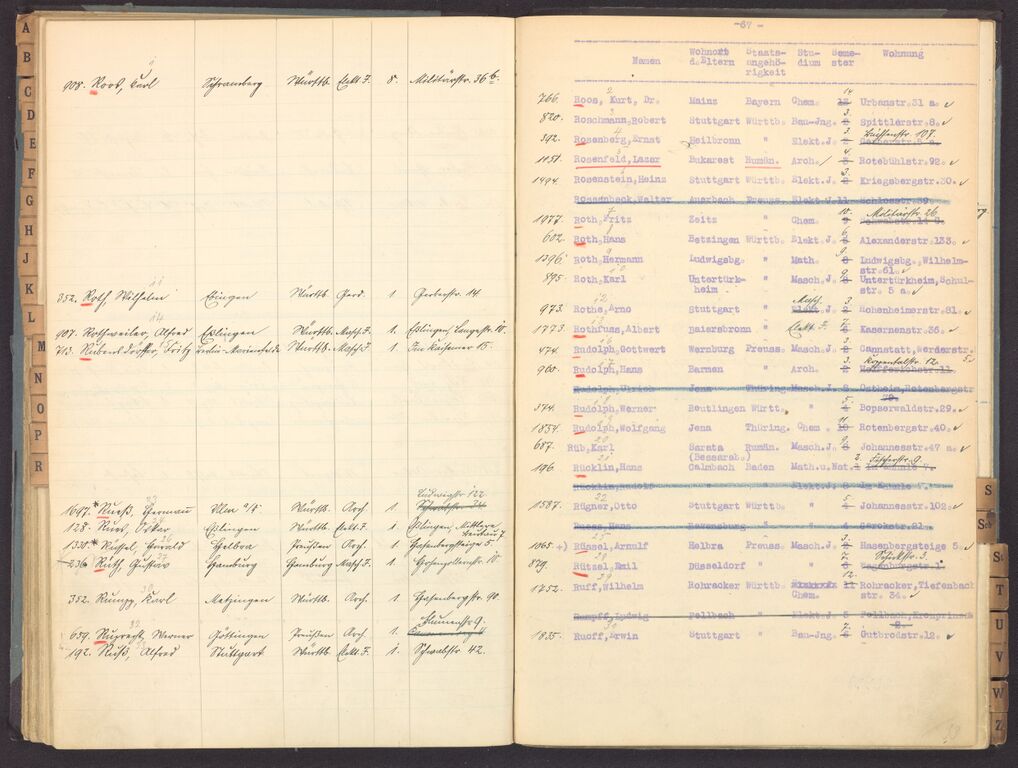 A
B
C
D
E
F
G
H
J
K
L
M
N
O
P
R
908. Root, Karl Schramberg Württb. Elekt. J. 8. Militärstr. 36 b.
352. Roth, Wilhelm Ebingen Württb. 1 Gerberstr. 14.
907. Rothweiler, Alfred Eßlingen Württb. Masch. J. 1. Eßlingen, Langestr. 10.
713. Fritz Berlin-Marienfelde Württb. Masch. J. 1. 15.
1697.* Rueß, Hermann Ulm a/d. Württb. Arch. 1. Ludwigstr. 122
128. Oskar Eßlingen Württb. Elekt. J. 1 Eßlingen, Mittlere
1330.* Rüssel, Helbra Preußen Arch. 1. Hasenbergsteige 5.
236. Ruth, Gustav Hamburg Hamburg Masch. J. 1.
352. Rumpp, Karl Metzingen Württb. Arch. 1. Hasenbergstr. 90.
639. Ruprecht, Werner Göttingen Preußen Arch. 1. Blumenstr. 9.
192. Ruß, Alfred Stuttgart Württb. Elekt. J. 1. Schwabstr. 42.
-67-
Namen Wohnort d.Eltern Staats-angehö-rigkeit Stu-dium Seme-ster Wohnung
766. Roos, Kurt, Dr. Mainz Bayern Chem. 14 Urbanstr.31 a.
820. Roschmann,Robert Stuttgart Württb. Bau-Jng. 3. Spittlerstr.8.
392. Rosenberg,Ernst Heilbronn " Elekt.J. 3. Büchsenstr. 107.
1051. Rosenfeld,Lazar Bukarest Rumän. Arch. 4. Rotebühlstr.92.
1494. Rosenstein,Heinz Stuttgart Württb. Elekt.J. 3. Kriegsbergstr.30.
Rosenbeck,Walter Auerbach Preuss. Elekt.J. 11 Schlosstr.39.
1977. Roth,Fritz Zeitz " Chem. 10. Militärstr. 26.
602. Roth,Hans Betzingen Württb. Elekt.J. 6. Alexanderstr.133.
1396. Roth,Hermann Ludwigsbg. " Math. 9 Ludwigsbg.,Wilhelm-
str.61.
895. Roth,Karl Untertürk-heim " Masch.J. 9. Untertürkheim,Schul-
str. 5 a.
973. Rothe,Arno Stuttgart " Masch. 3. Hohenheimerstr.81.
1773. Rothfuss,Albert Baiersbronn " Elekt. J. Kasernenstr.36.
474. Rudolph,Gottwert Wernburg Preuss. Masch.J. Cannstatt, Werderstr.
960. Rudolph,Hans Barmen " Arch. 3. Koppentalstr. 12.
Rudolph,Ulrich Jena Thüring. Masch.J. 8 Ostheim,Rotenbergstr
374. Rudolph,Werner Reutlingen Württb. " 5. Bopserwaldstr.29.
1834. Rudolph,Wolfgang Jena Thüring. Chem. 11 Rotenbergstr.40.
687. Rüb,Karl Sarata Rumän. Masch.J. 9. Johannesstr.47 a.
(Bessarab.)
196 Rücklin,Hans Calmbach Baden Math.u.Nat. 2.
Rücklin,Rudolf " " Elekt.J. 8
1587. Rügner,Otto Stuttgart Württb. " 5. Johannesstr.102.
Ruess,Hans Ravensburg " " 4 Seeckstr.21.
1065 +) Rüssel,Arnulf Helbra Preuss. Masch.J. 3. Hasenbergsteige 5.
879. Rützel,Emil Düsseldorf " " 3.
1752. Ruff,Wilhelm Rohracker Württb. Chem. 12. Rohracker,Tiefenbach-
str. 34.
Rumpff,Ludwig Fellbach " Elekt.J. 5 Fellbach,Kronprinz
1835. Ruoff,Erwin Stuttgart " Bau-Jng. 7. Gutbrodstr.12.
S
Sch
St
T
U
V
W
Z